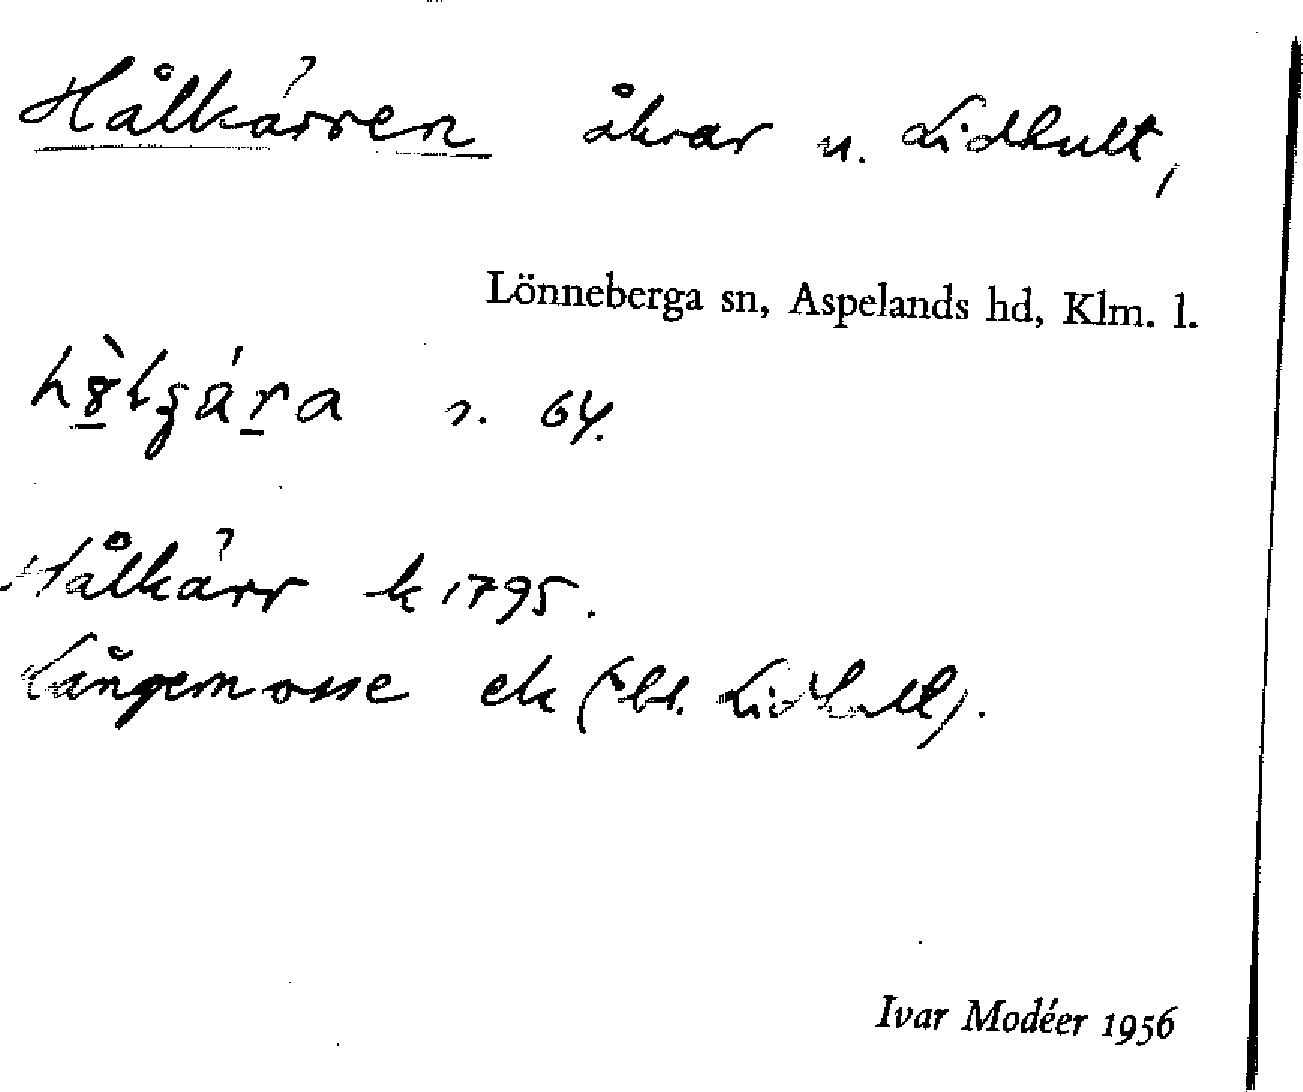 Hålkärren åkrar u. Lidhult,
Lönneberga sn, Aspelands hd, Klm. l.
r. 64.
Hålkärr k 1795.
Långemosse ek (bl. Lidhult).
Ivar Modéer 1956